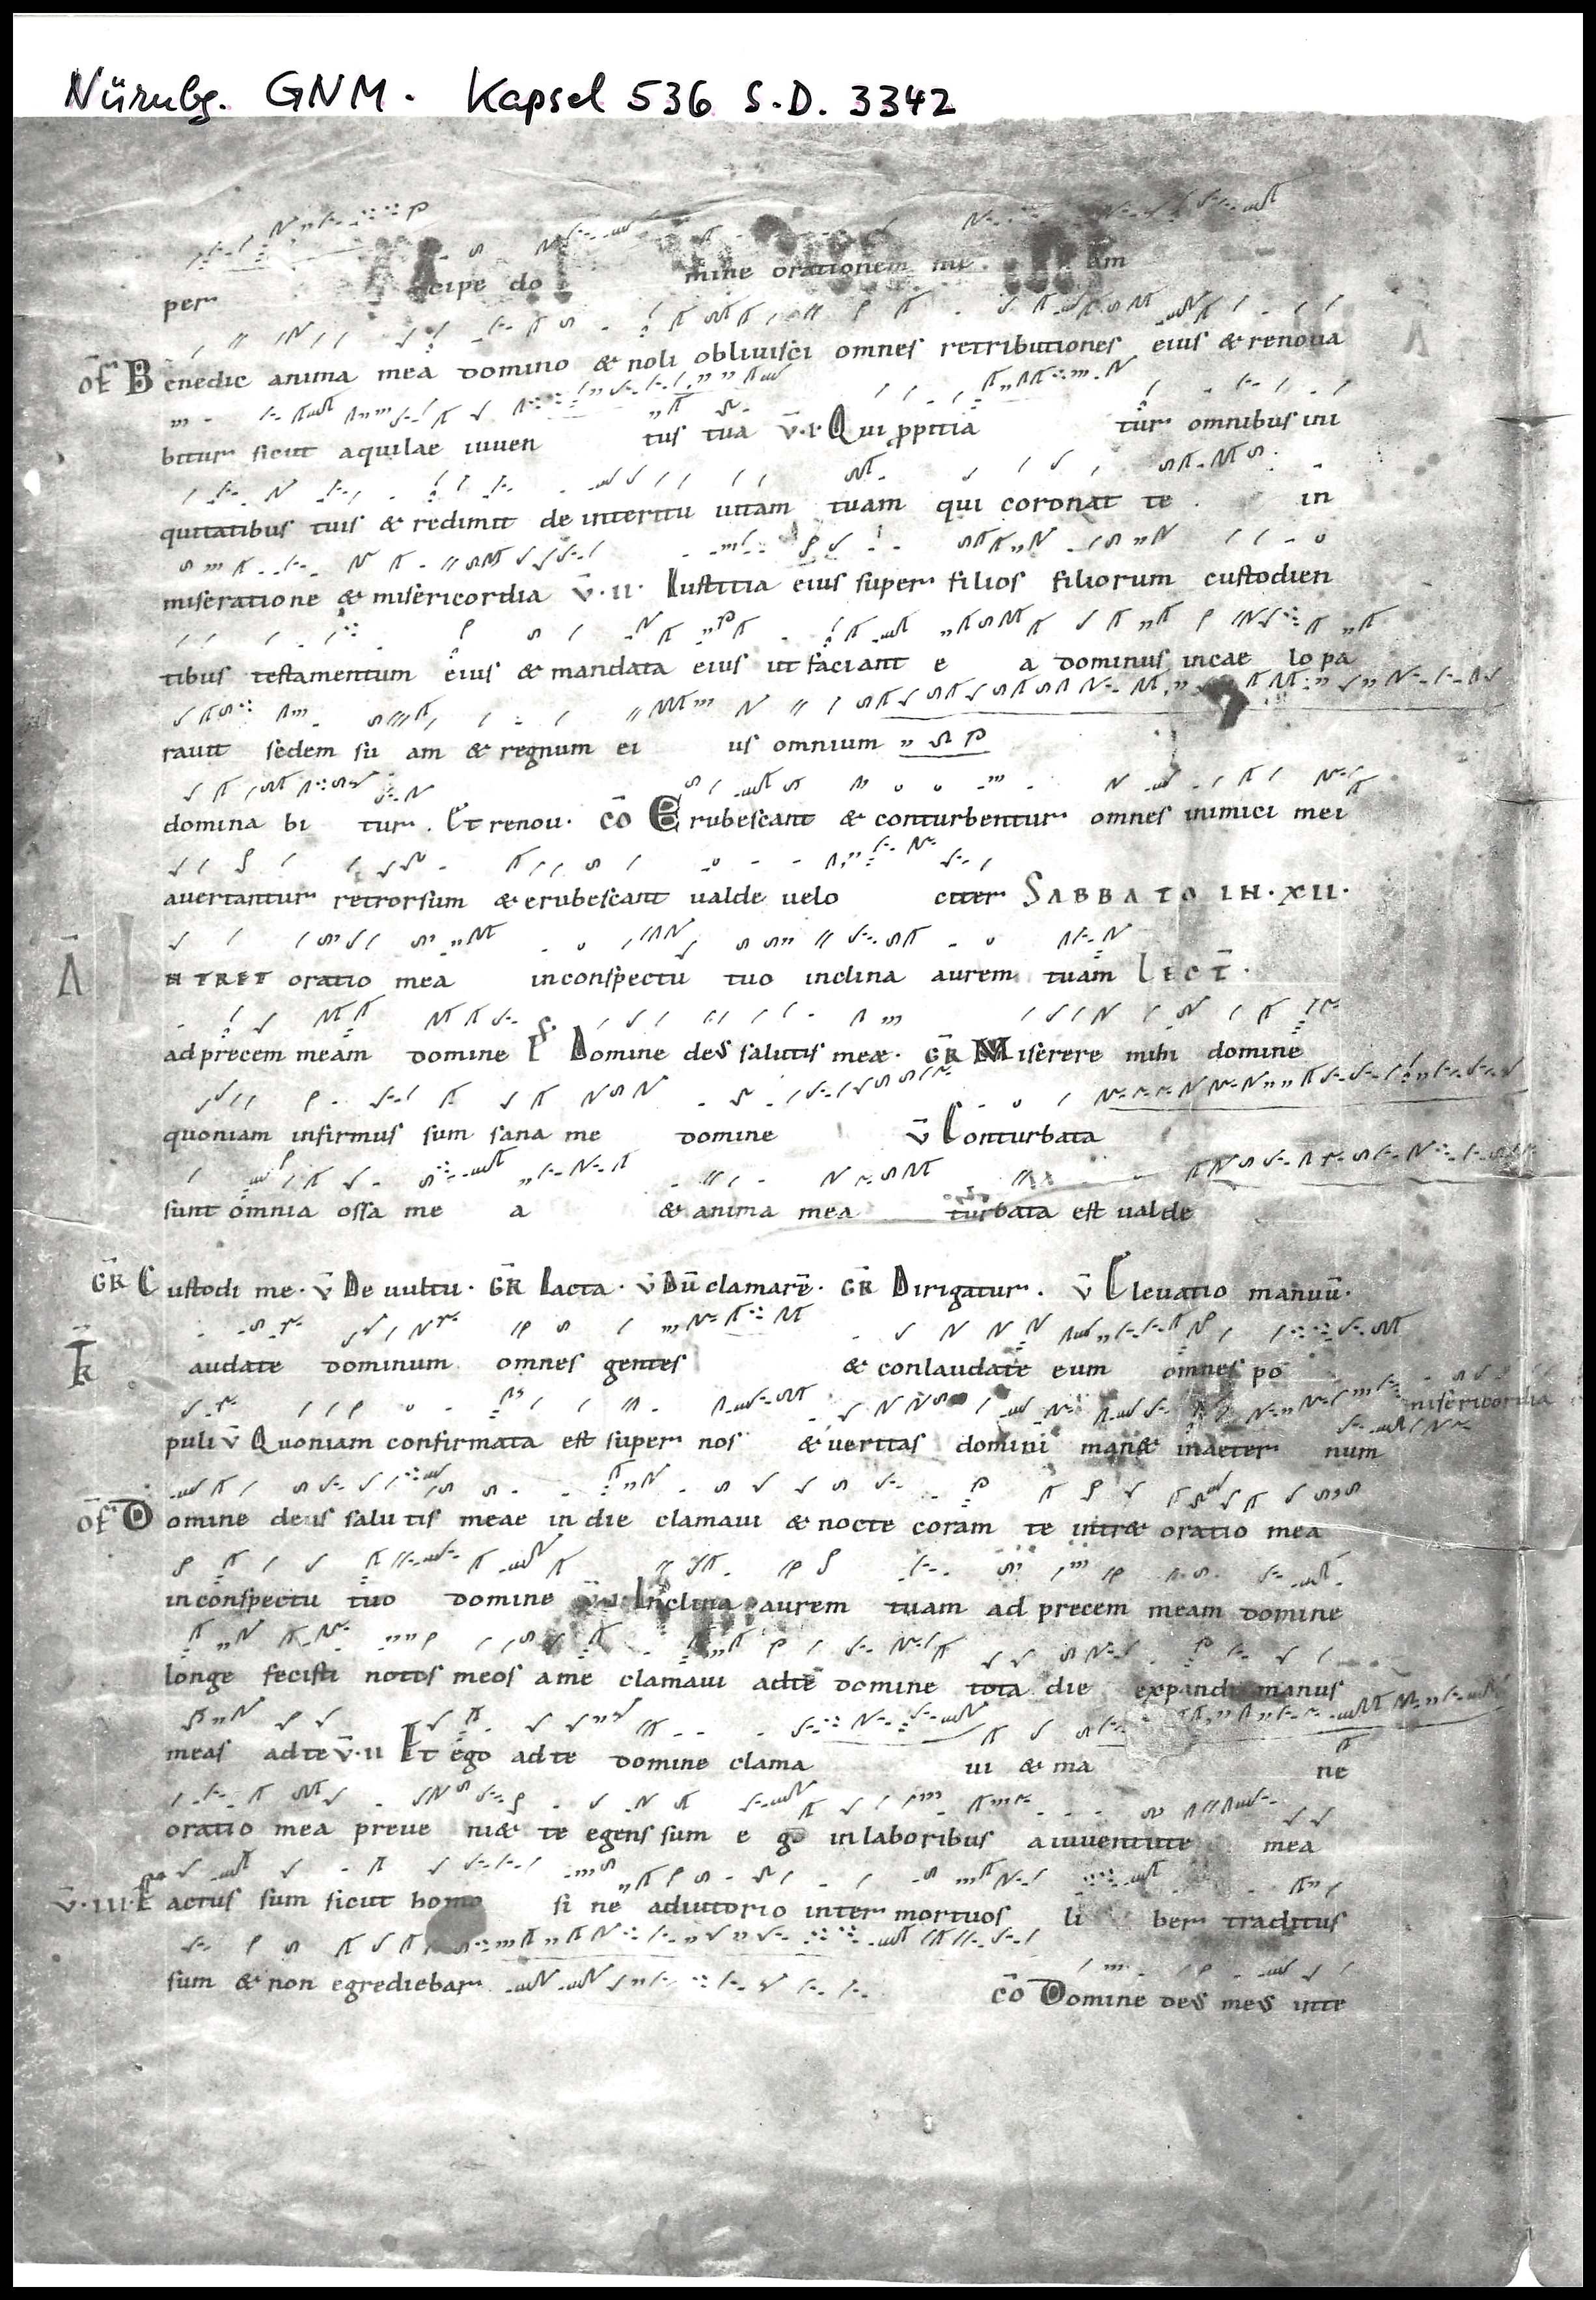 Nürnbg. GNM. Kapsel 536 S.D. 3342
per cipe do mine orationem me am
of B enedic anima mea domino & noli obliuisci omnes retributiones eius & renoua
bitur sicut aquilae iuuen tus tua v̄.I Qui ꝓpitia tur omnibus ini
quitatibus tuis & redimit de interitu uitam tuam qui coronat te in
miseratione & misericordia v̄.II. Iustitia eius super filios filiorum custodien
tibus testamentum eius & mandata eius ut faciant e a dominus incae lo pa
rauit sedem su am & regnum ei us omnium
domina bi tur. Et renou. c̄o Erubescant & conturbentur omnes inimici mei
auertantur retrorsum & erubescant ualde uelo citer SABBATO IN.XII.
Ā NTRET oratio mea inconspectu tuo inclina aurem tuam LECT̄.
ad precem meam domine Ps Domine des salutis meæ. ḠR Miserere mihi domine
quoniam infirmus sum sana me domine v̄ Conturbata
sunt omnia ossa me a & anima mea turbata est ualde
ḠR Custodi me. v̄ De uultu. ḠR Iacta. v̄ Dū clamarē. ḠR Dirigatur. v̄ Eleuatio manuū.
audate dominum omnes gentes & conlaudate eum omnes po
misericordia
puli v̄ Quoniam confirmata est super nos & ueritas domini man& inaeter num
of Domine deus salu tis meae in die clamaui & nocte coram te intr& oratio mea
inconspectu tuo domine v̄.I. Inclina aurem tuam ad precem meam domine
longe fecisti notos meos a me clamaui adte domine tota die expandi manus
meas adte v̄.II Et ego adte domine clama ui & ma ne
oratio mea preue ni& te egens sum e go inlaboribus a iuuentute mea
v̄.III.Factus sum sicut homo si ne adiutorio inter mortuos li ber traditus
sum & non egrediebar c̄o Domine des mes inte